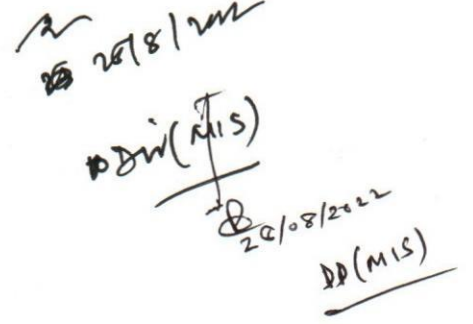 28/8/2022
Dir(MIS)
26/08/2022
DD(MIS)